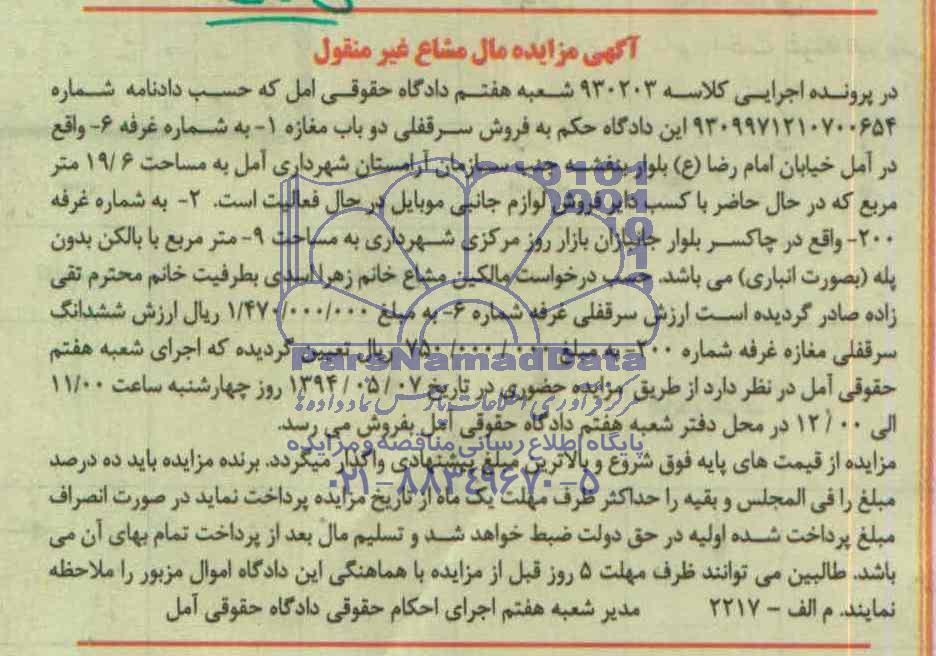 آگهی مزایده مال مشاع غیر منقول
در پرونده اجرایی کلاسه ۹۳۰۲۰۳ شعبه هفتم دادگاه حقوقی امل که حسب دادنامه شماره
۹۳۰۹۹۷۱۲۱۰۷۰۰۶۵۴ این دادگاه حکم به فروش سرقفلی دو باب مغازه ۱- به شماره غرفه ۶- واقع
در آمل خیابان امام رضا (ع) بلوار بنفشه جنب سازمان آرامستان شهرداری آمل به مساحت ۱۹/۶ متر
مربع که در حال حاضر با کسب دایر فروش لوازم جانبی موبایل در حال فعالیت است. ۲- به شماره غرفه
۲۰۰- واقع در چاکسر بلوار جانبازان بازار روز مرکزی شهرداری به مساحت ۹- متر مربع با بالکن بدون
پله (بصورت انباری) می باشد. حسب درخواست مالکین مشاع خانم زهرا اسدی بطرفیت خانم محترم تقی
زاده صادر گردیده است ارزش سرقفلی غرفه شماره ۶- به مبلغ ۱/۴۷۰/۰۰۰/۰۰۰ ریال ارزش ششدانگ
سرقفلی مغازه غرفه شماره ۲۰۰- به مبلغ ۷۵۰/۰۰۰/۰۰۰ ریال تعیین گردیده که اجرای شعبه هفتم
ParsNamadData
حقوقی آمل در نظر دارد از طریق مزایده حضوری در تاریخ ۱۳۹۴/۰۵/۰۷ روز چهارشنبه ساعت ۱۱/۰۰
مرکز فرآوری اطلاعات پارس نماد داده ها
الی ۱۲/۰۰ در محل دفتر شعبه هفتم دادگاه حقوقی آمل بفروش می رسد.
پایگاه اطلاع رسانی مناقصه و مزایده
مزایده از قیمت های پایه فوق شروع و بالاترین مبلغ پیشنهادی واگذار میگردد. برنده مزایده باید ده درصد
۰۲۱-۸۸۳۴۹۶۷۰-۵
مبلغ را فی المجلس و بقیه را حداکثر ظرف مهلت یک ماه از تاریخ مزایده پرداخت نماید در صورت انصراف
مبلغ پرداخت شده اولیه در حق دولت ضبط خواهد شد و تسلیم مال بعد از پرداخت تمام بهای آن می
باشد. طالبین می توانند ظرف مهلت ۵ روز قبل از مزایده با هماهنگی این دادگاه اموال مزبور را ملاحظه
نمایند. م الف - ۲۲۱۷ مدیر شعبه هفتم اجرای احکام حقوقی دادگاه حقوقی آمل